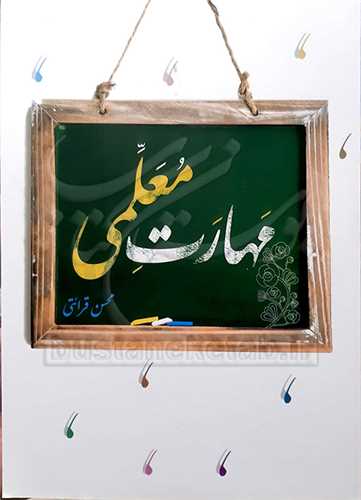 مهارت
مُعَلِّمی
محسن قرائتی
bustaneketab.ir